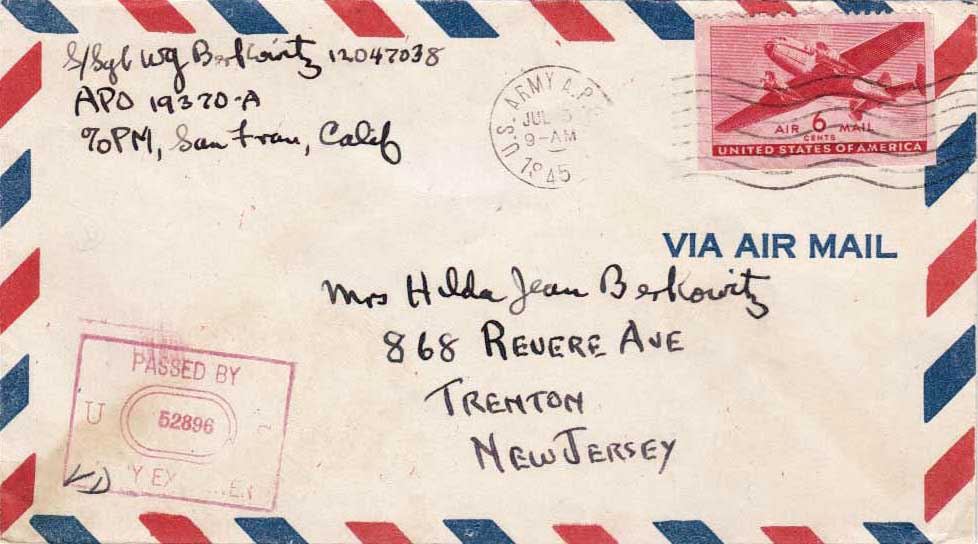 S/Sgt WG Berkowitz 12047038
APO 19370-A
℅ PM, San Fran, Calif
U.S. ARMY A.P.
JUL
9-AM
1945
AIR 6 MAIL
CENTS
UNITED STATES OF AMERICA
VIA AIR MAIL
Mrs Hilda Jean Berkowitz
868 REVERE AVE
TRENTON
NEW JERSEY
PASSED BY
U
52896